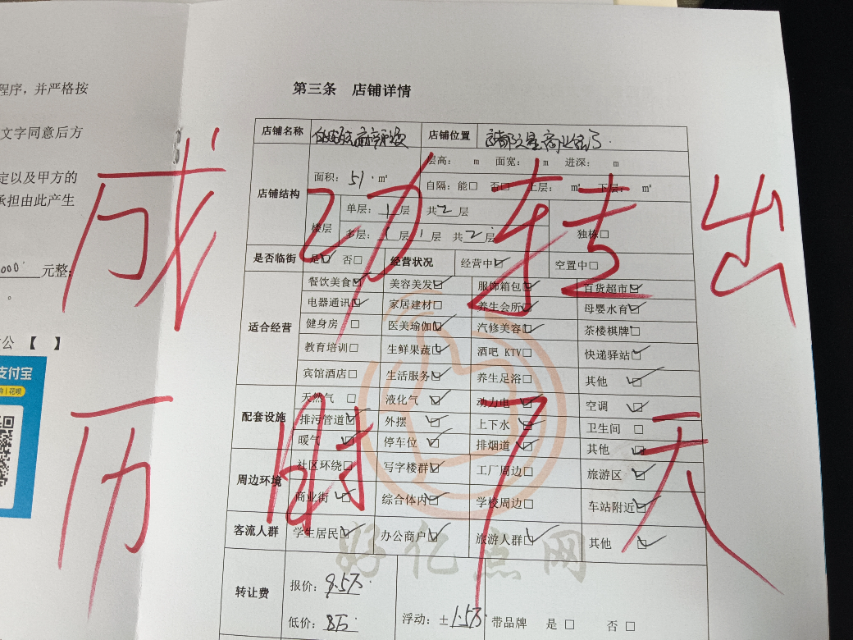 程序，并严格按
文字同意后方
定以及甲方的
承担由此产生
000 元整；
。
公 【 】
支付宝
第三条 店铺详情
店铺名称 店铺位置
店铺结构 面积：51 m² 层高： m 面宽： m 进深： m
自隔：能□ 否□ 上层： m² 下层： m²
楼层 单层：1层 共2层 独栋□
多层：1层1层 共2层
是否临街 是☑ 否□ 经营状况 经营中☑ 空置中□
适合经营 餐饮美食☑ 美容美发☑ 服饰箱包☑ 百货超市☑
电器通讯☑ 家居建材□ 养生会所☑ 母婴水育☑
健身房 □ 医美瑜伽☑ 汽修美容☑ 茶楼棋牌□
教育培训□ 生鲜果蔬☑ 酒吧 KTV□ 快递驿站☑
宾馆酒店□ 生活服务☑ 养生足浴□ 其他 ☑
配套设施 天然气 □ 液化气 ☑ 动力电 ☑ 空调 ☑
排污管道☑ 外摆 ☑ 上下水 ☑ 卫生间 □
暖气 ☑ 停车位 ☑ 排烟道 ☑ 其他 ☑
周边环境 社区环绕□ 写字楼群☑ 工厂周边□ 旅游区 ☑
商业街 ☑ 综合体内☑ 学校周边□ 车站附近☑
客流人群 学生居民☑ 办公商户☑ 旅游人群☑ 其他 ☑
转让费 报价：8.5万
低价：8万 浮动：±1.5万 带品牌 是 □ 否 □
成功转出
历时7天
好亿点网